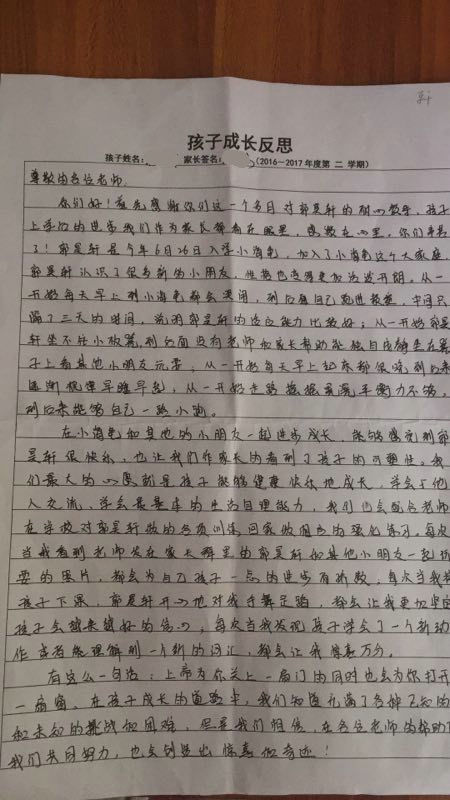 轩
孩子成长反思
孩子姓名: 家长签名: (2016—2017年度第 二 学期)
尊敬的各位老师:
你们好!首先感谢你们这一个多月对郭昊轩的耐心教导,孩子
上学后的进步我们作为家长都看在眼里,感激在心里,你们辛苦
了!郭昊轩是今年6月26日入学小海龟,加入了小海龟这个大家庭,
郭昊轩认识了很多新的小朋友,性格也变得更加活泼开朗。从一
开始每天早上到小海龟都会哭闹,到后面自己跑进教室,中间只
隔了三天的时间,说明郭昊轩的适应能力比较好;从一开始郭昊
轩坐不住小板凳,到后面没有老师和家长帮助能独自安静坐在凳
子上看其他小朋友玩耍,从一开始每天早上起床都很晚,到后来
逐渐规律早睡早起,从一开始走路摇摇晃晃平衡力不够,
到后来能够自己一路小跑。
在小海龟和其他的小朋友一起进步成长,能够感觉到郭
昊轩很快乐,也让我们作家长的看到了孩子的可塑性。我
们最大的心愿就是孩子能够健康快乐地成长,学会与他
人交流,学会最基本的生活自理能力,我们也会配合老师
在学校对郭昊轩做的各项训练回家做相应的强化练习。每次
当我看到老师发在家长群里的郭昊轩和其他小朋友一起玩
耍的照片,都会为自己孩子一点的进步有骄傲,每次当我接
孩子下课,郭昊轩开心地对我手舞足蹈,都会让我更加坚定
孩子会越来越好的信心;每次当我发现孩子学会了一个新动
作或者能理解到一个新的词汇,都会让我惊喜万分。
有这么一句话:上帝为你关上一扇门的同时也会为你打开
一扇窗。在孩子成长的道路中,我们知道充满了各种已知的
和未知的挑战和困难,但是我们相信,在各位老师的帮助下
我们共同努力,也会创造出惊喜和奇迹!